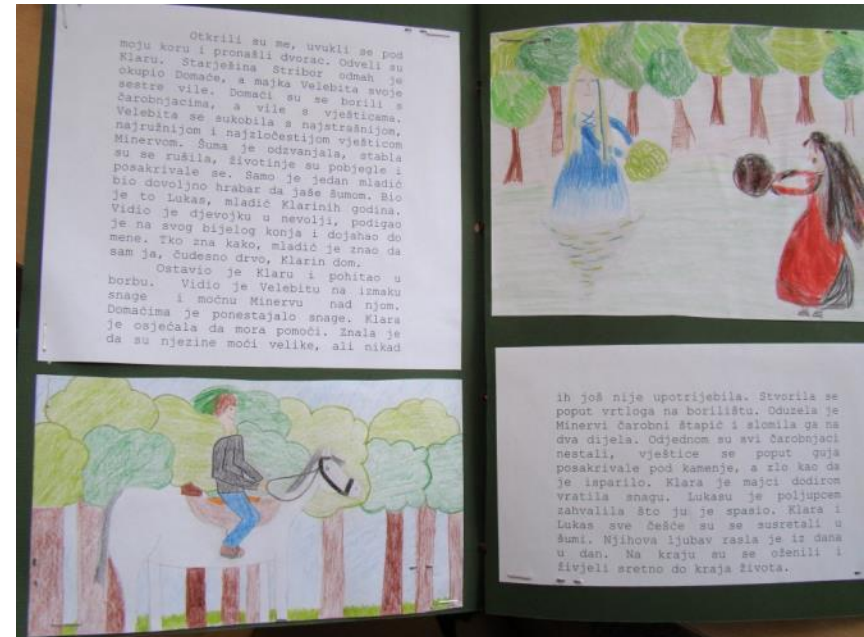 Otkrili su me, uvukli se pod
moju koru i pronašli dvorac. Odveli su
Klaru. Starješina Stribor odmah je
okupio Domaće, a majka Velebita svoje
sestre vile. Domaći su se borili s
čarobnjacima, a vile s vješticama.
Velebita se sukobila s najstrašnijom,
najružnijom i najzločestijom vješticom
Minervom. Šuma je odzvanjala, stabla
su se rušila, životinje su pobjegle i
posakrivale se. Samo je jedan mladić
bio dovoljno hrabar da jaše šumom. Bio
je to Lukas, mladić Klarinih godina.
Vidio je djevojku u nevolji, podigao
je na svog bijelog konja i dojahao do
mene. Tko zna kako, mladić je znao da
sam ja, čudesno drvo, Klarin dom.
Ostavio je Klaru i pohitao u
borbu. Vidio je Velebitu na izmaku
snage i moćnu Minervu nad njom.
Domaćima je ponestajalo snage. Klara
je osjećala da mora pomoći. Znala je
da su njezine moći velike, ali nikad
ih još nije upotrijebila. Stvorila se
poput vrtloga na borilištu. Oduzela je
Minervi čarobni štapić i slomila ga na
dva dijela. Odjednom su svi čarobnjaci
nestali, vještice se poput guja
posakrivale pod kamenje, a zlo kao da
je isparilo. Klara je majci dodirom
vratila snagu. Lukasu je poljupcem
zahvalila što ju je spasio. Klara i
Lukas sve češće su se susretali u
šumi. Njihova ljubav rasla je iz dana
u dan. Na kraju su se oženili i
živjeli sretno do kraja života.